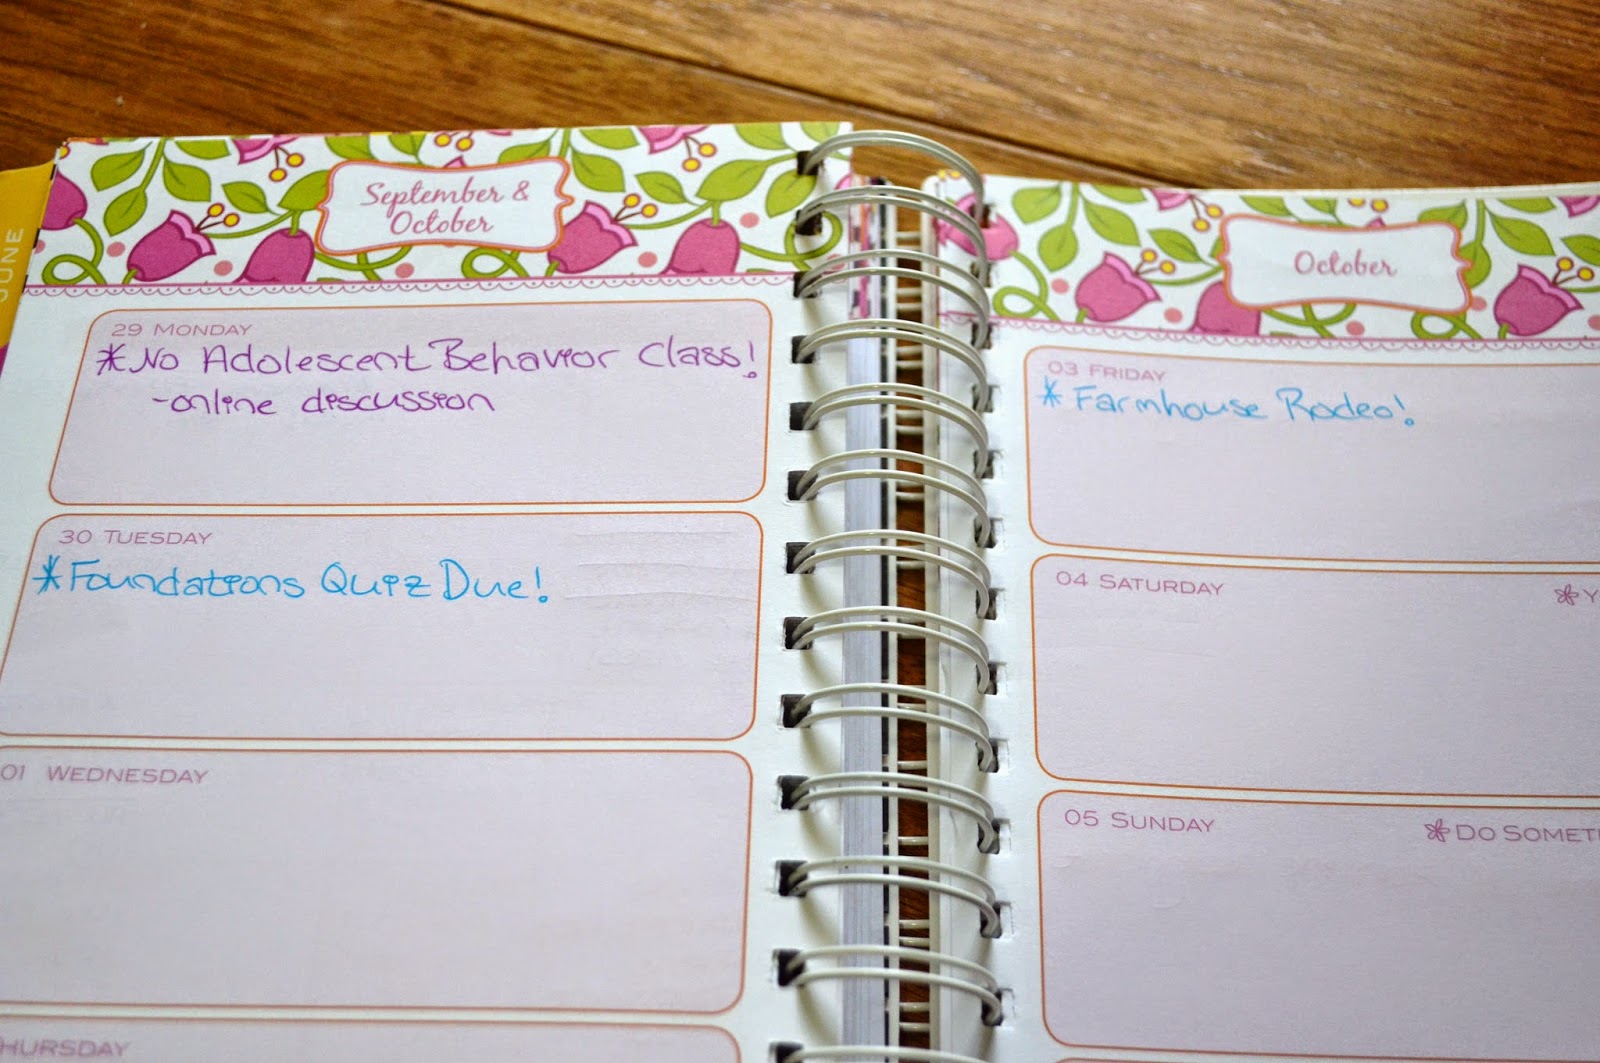 JUNE
September &
October
29 MONDAY
*No Adolescent Behavior Class!
-online discussion
30 TUESDAY
*Foundations Quiz Due!
01 WEDNESDAY
HURSDAY
October
03 FRIDAY
* Farmhouse Rodeo!
04 SATURDAY
Y
05 SUNDAY
DO SOMET